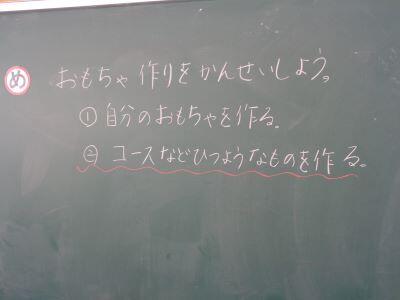 め おもちゃ作りをかんせいしよう。
①自分のおもちゃを作る。
②コースなどひつようなものを作る。